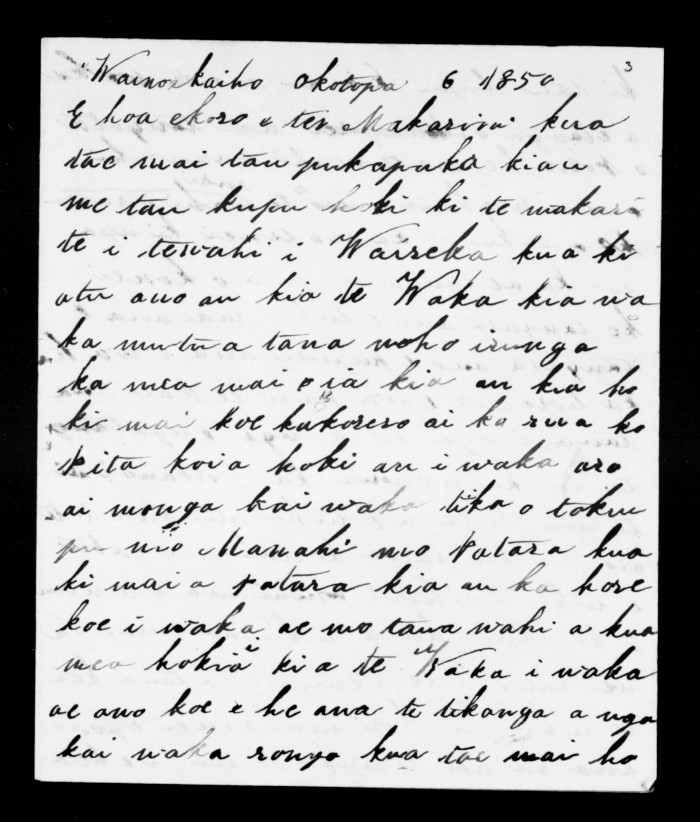 3
Okotopa 6 1850
E hoa ekoro e te Makarini kua
tae mai tau pukapuka kiau
me tau kupu hoki ki te makari
te i tewahi i Waireka kua ki
atu ano au kia te Waka kia wa
ka mutu a tana noho irunga
ka mea mai e ia kia au kia ho
ki mai koe kakorero ai ka rua ko
Pita koia hoki au i waka aro
ai monga kai waka tika o tokuu
pu mo Manahi mo Patara kua
ki mai a Patara kia au ka hore
koe i waka ae mo taua wahi a kua
mea hokia ki a te Waka i waka
ae ano koe e he ana te tikanga a nga
kai waka rongo kua tae mai ho